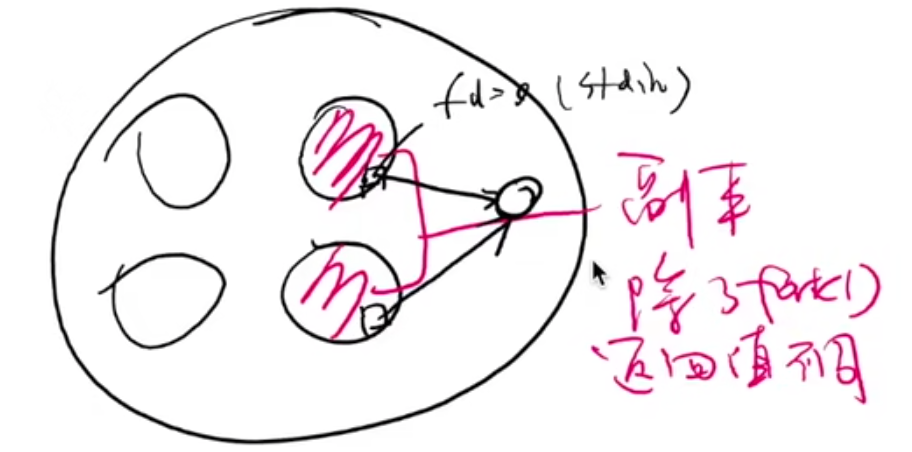 fd=0 (stdin)
副本
除了fork()
返回值不同